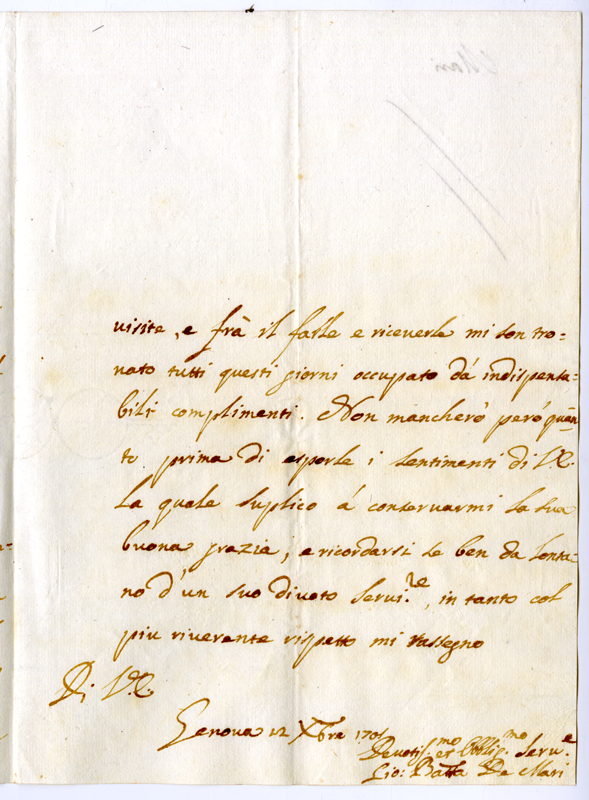 visite, e frà il farle e riceverle mi son tro=
vato tutti questi giorni occupato dà indispensa=
bili complimenti. Non mancherò però quan
to prima di esporle i sentimenti di V.E.
la quale suplico à conservarmi la sua
buona grazia, e ricordarsi se ben da lonta=
no d'un suo divoto servi.re, in tanto col
più riverente rispetto mi rassegno
Di V.E.
Genova 12 Xbre
Devotis.mo et Obblig.mo Serv.e
Gio: Batta De Mari